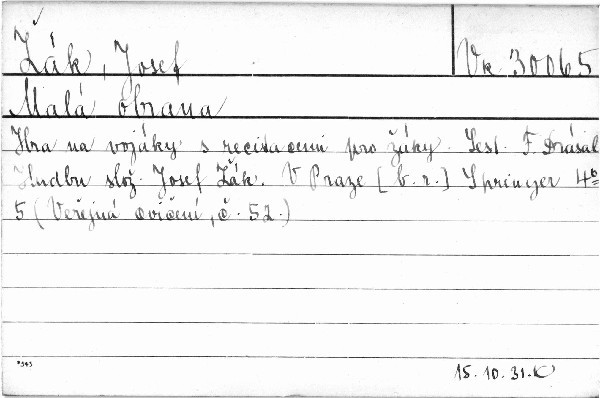 Žák, Josef
Vk 30065
Malá obrana
Hra na vojáky s recitacemi pro žáky. Sest. F. Drásal
Hudbu slož. Josef Žák. V Praze [b. r.] Springer 4°
5 (Veřejná cvičení, č. 52.)
15. 10. 31.